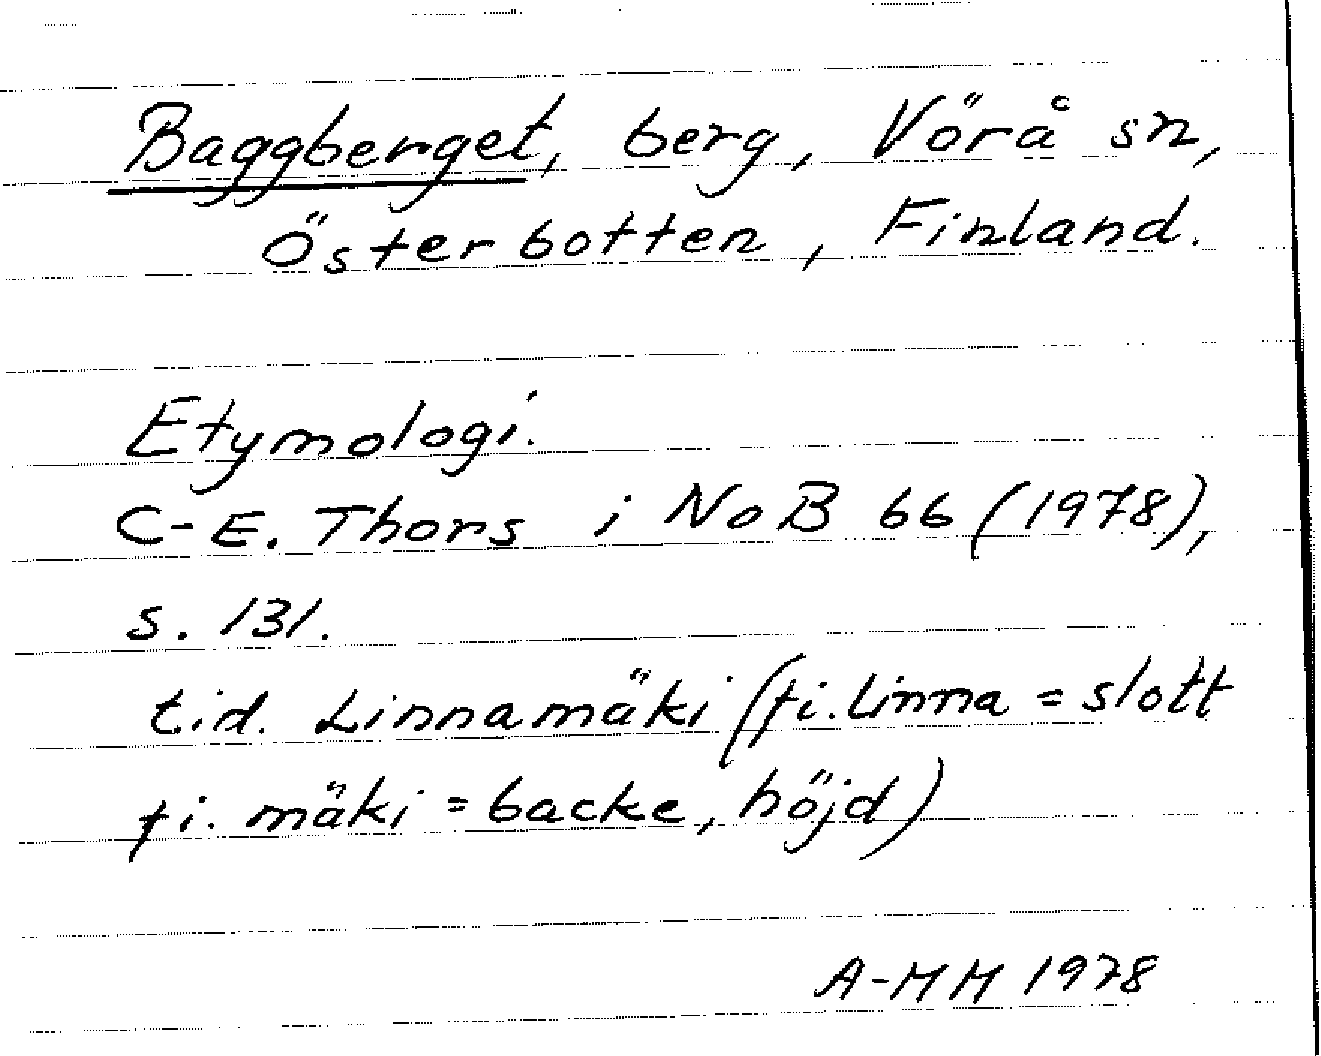 Baggberget, berg, Vörå sn,
Österbotten, Finland.
Etymologi.
C-E. Thors i NoB 66 (1978),
s. 131.
tid. Linnamäki (fi. linna = slott
fi. mäki = backe, höjd)
A-MM 1978